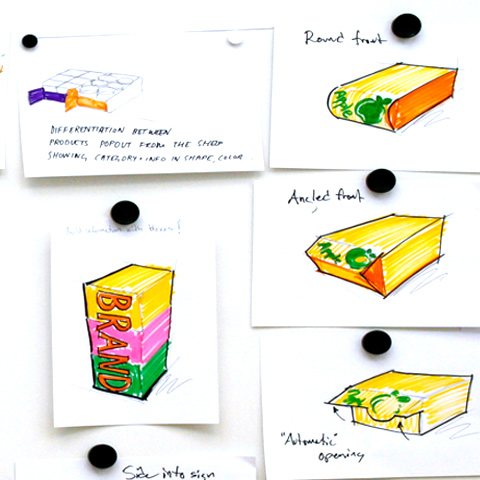 DIFFERENTIATION BETWEEN
PRODUCTS POPOUT FROM THE SHELF
SHOWING CATEGORY + INFO IN SHAPE, COLOR
Round front
Angled front
BRAND
"Automatic"
opening
Side into sign